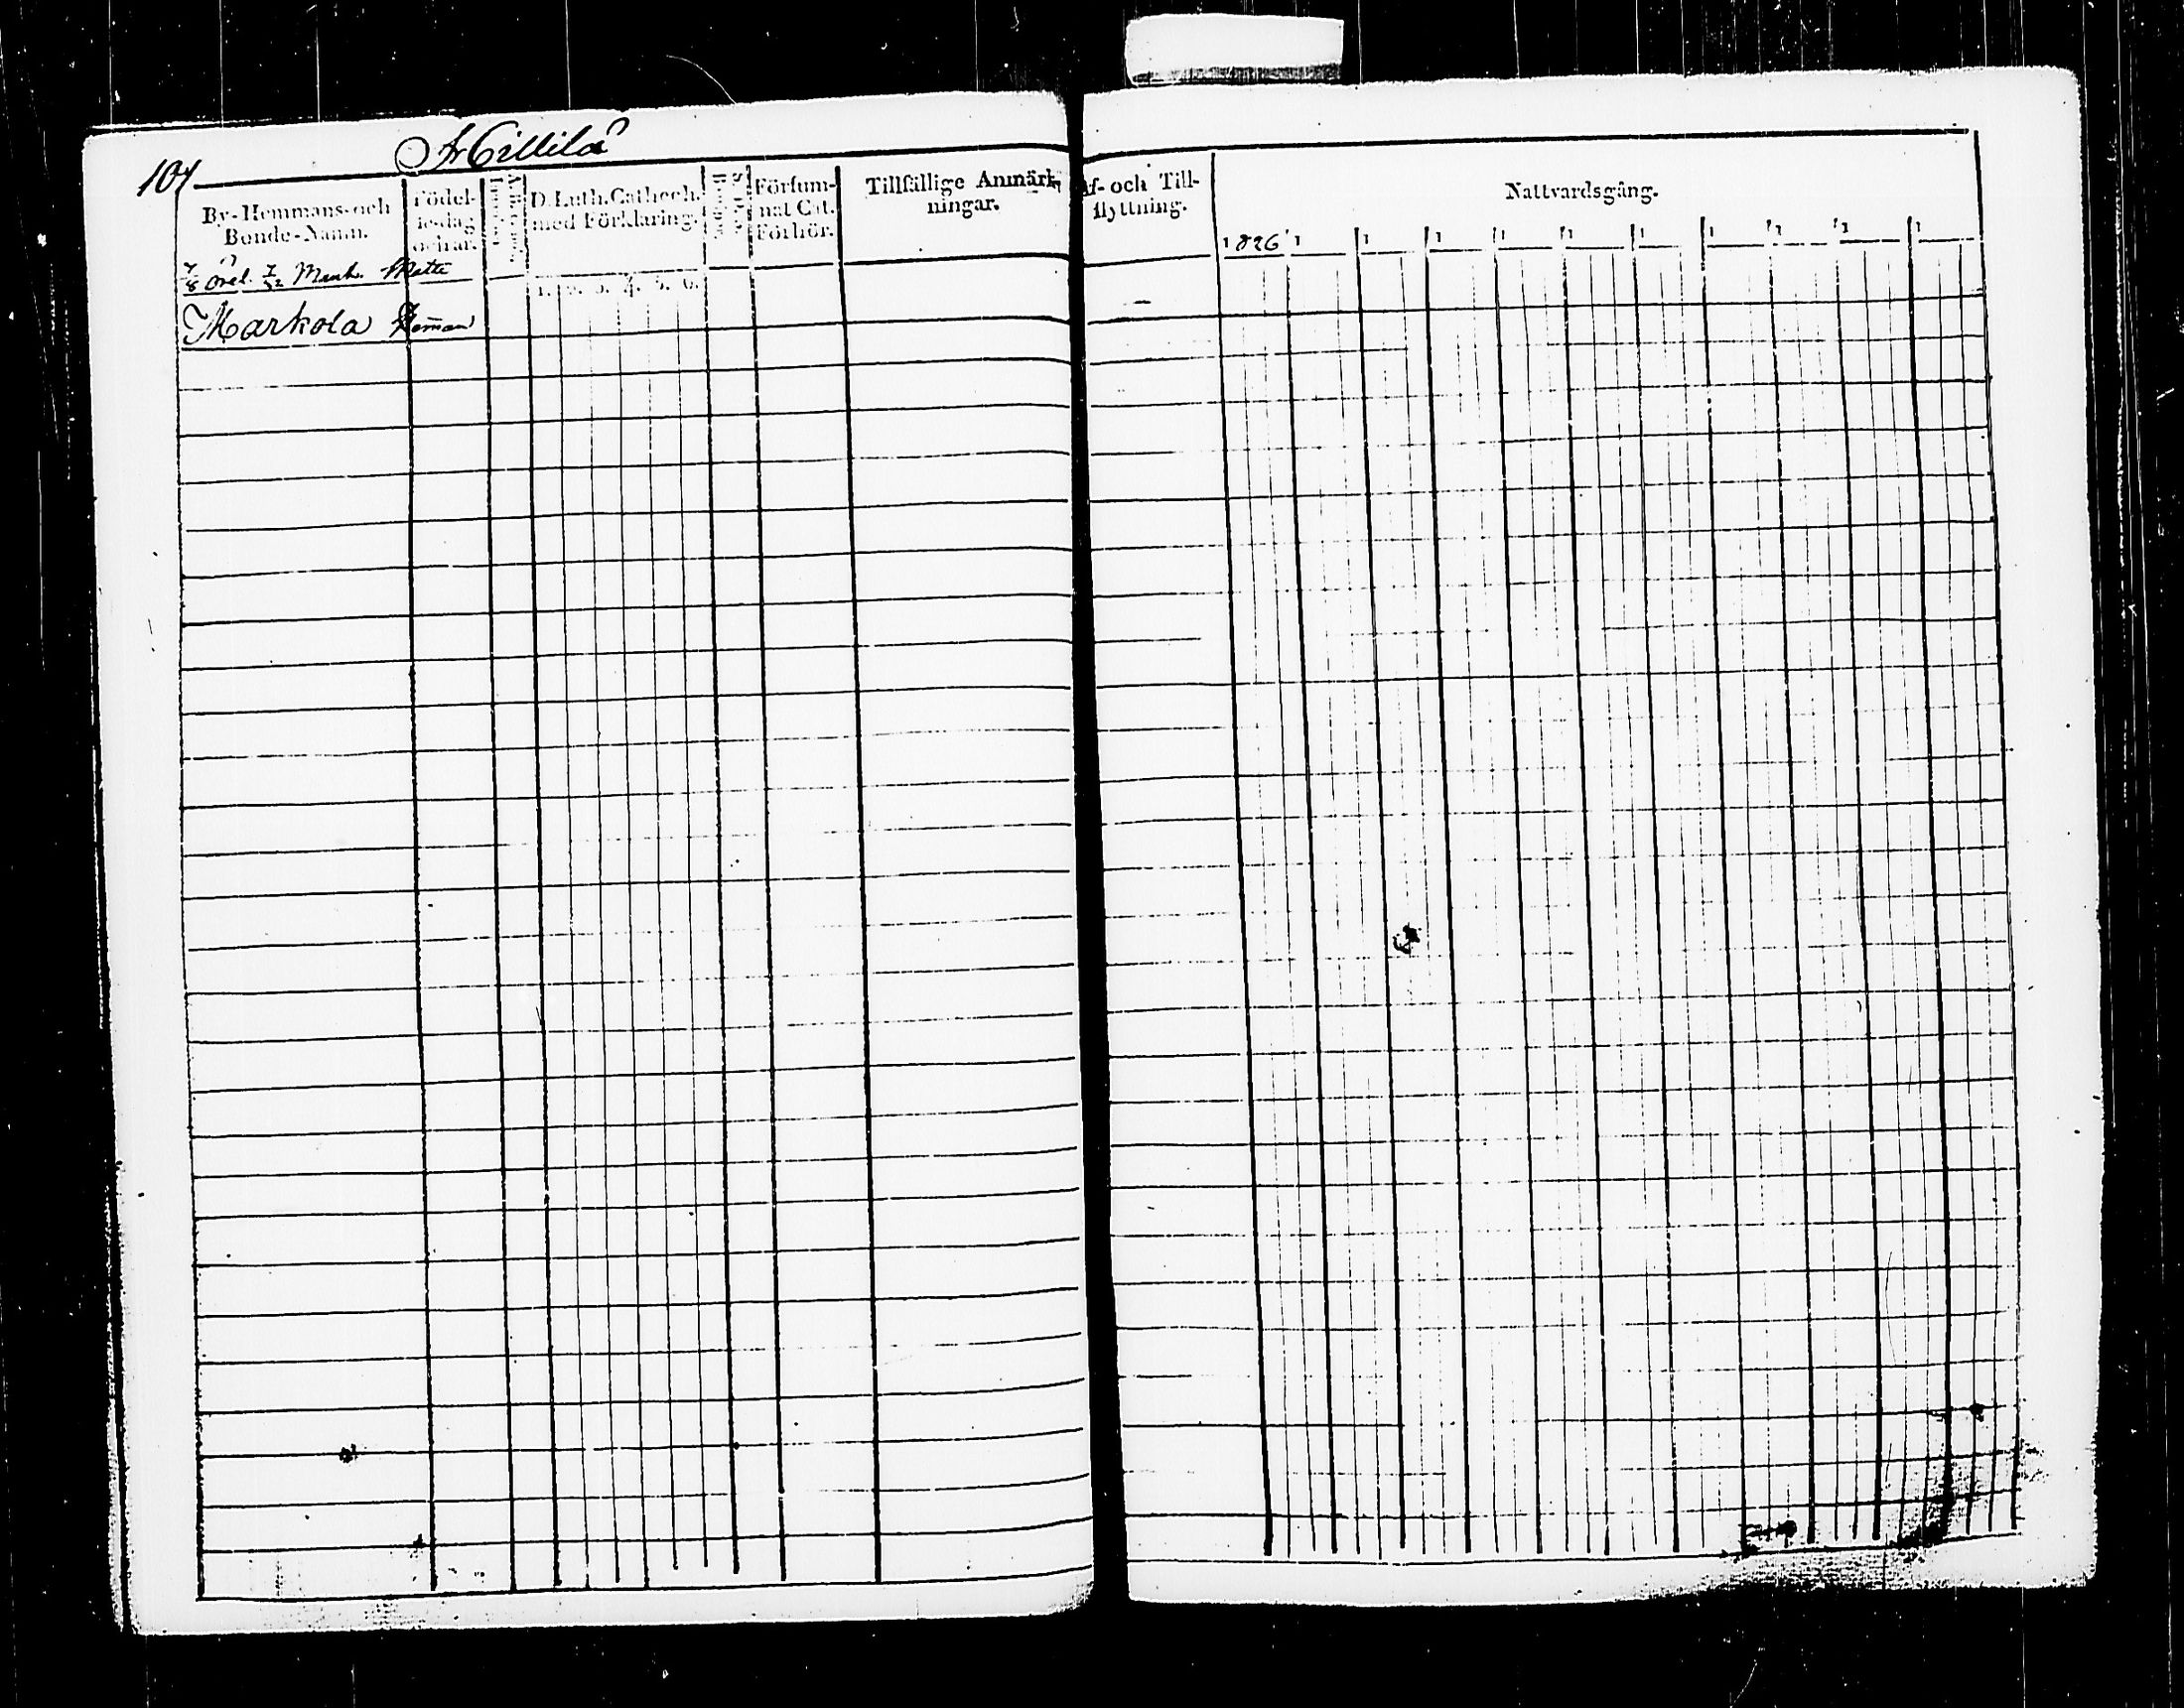 107
By-Hemmans-och
Bonde-Namn.
Födel-
sedag
och år.
D. Luth. Cathech.
med Förklaring.
1. 2. 3. 4. 5. 6.
Försum-
nat Cat.
Förhör.
Tillfällige Anmärk-
ningar.
7/8 örel. 7/32 Mant. Skatte
Markola Hem̅an
Af- och Till-
flyttning.
Nattvardsgång.
1826 1 1 1 1 1 1 1 1 1 1